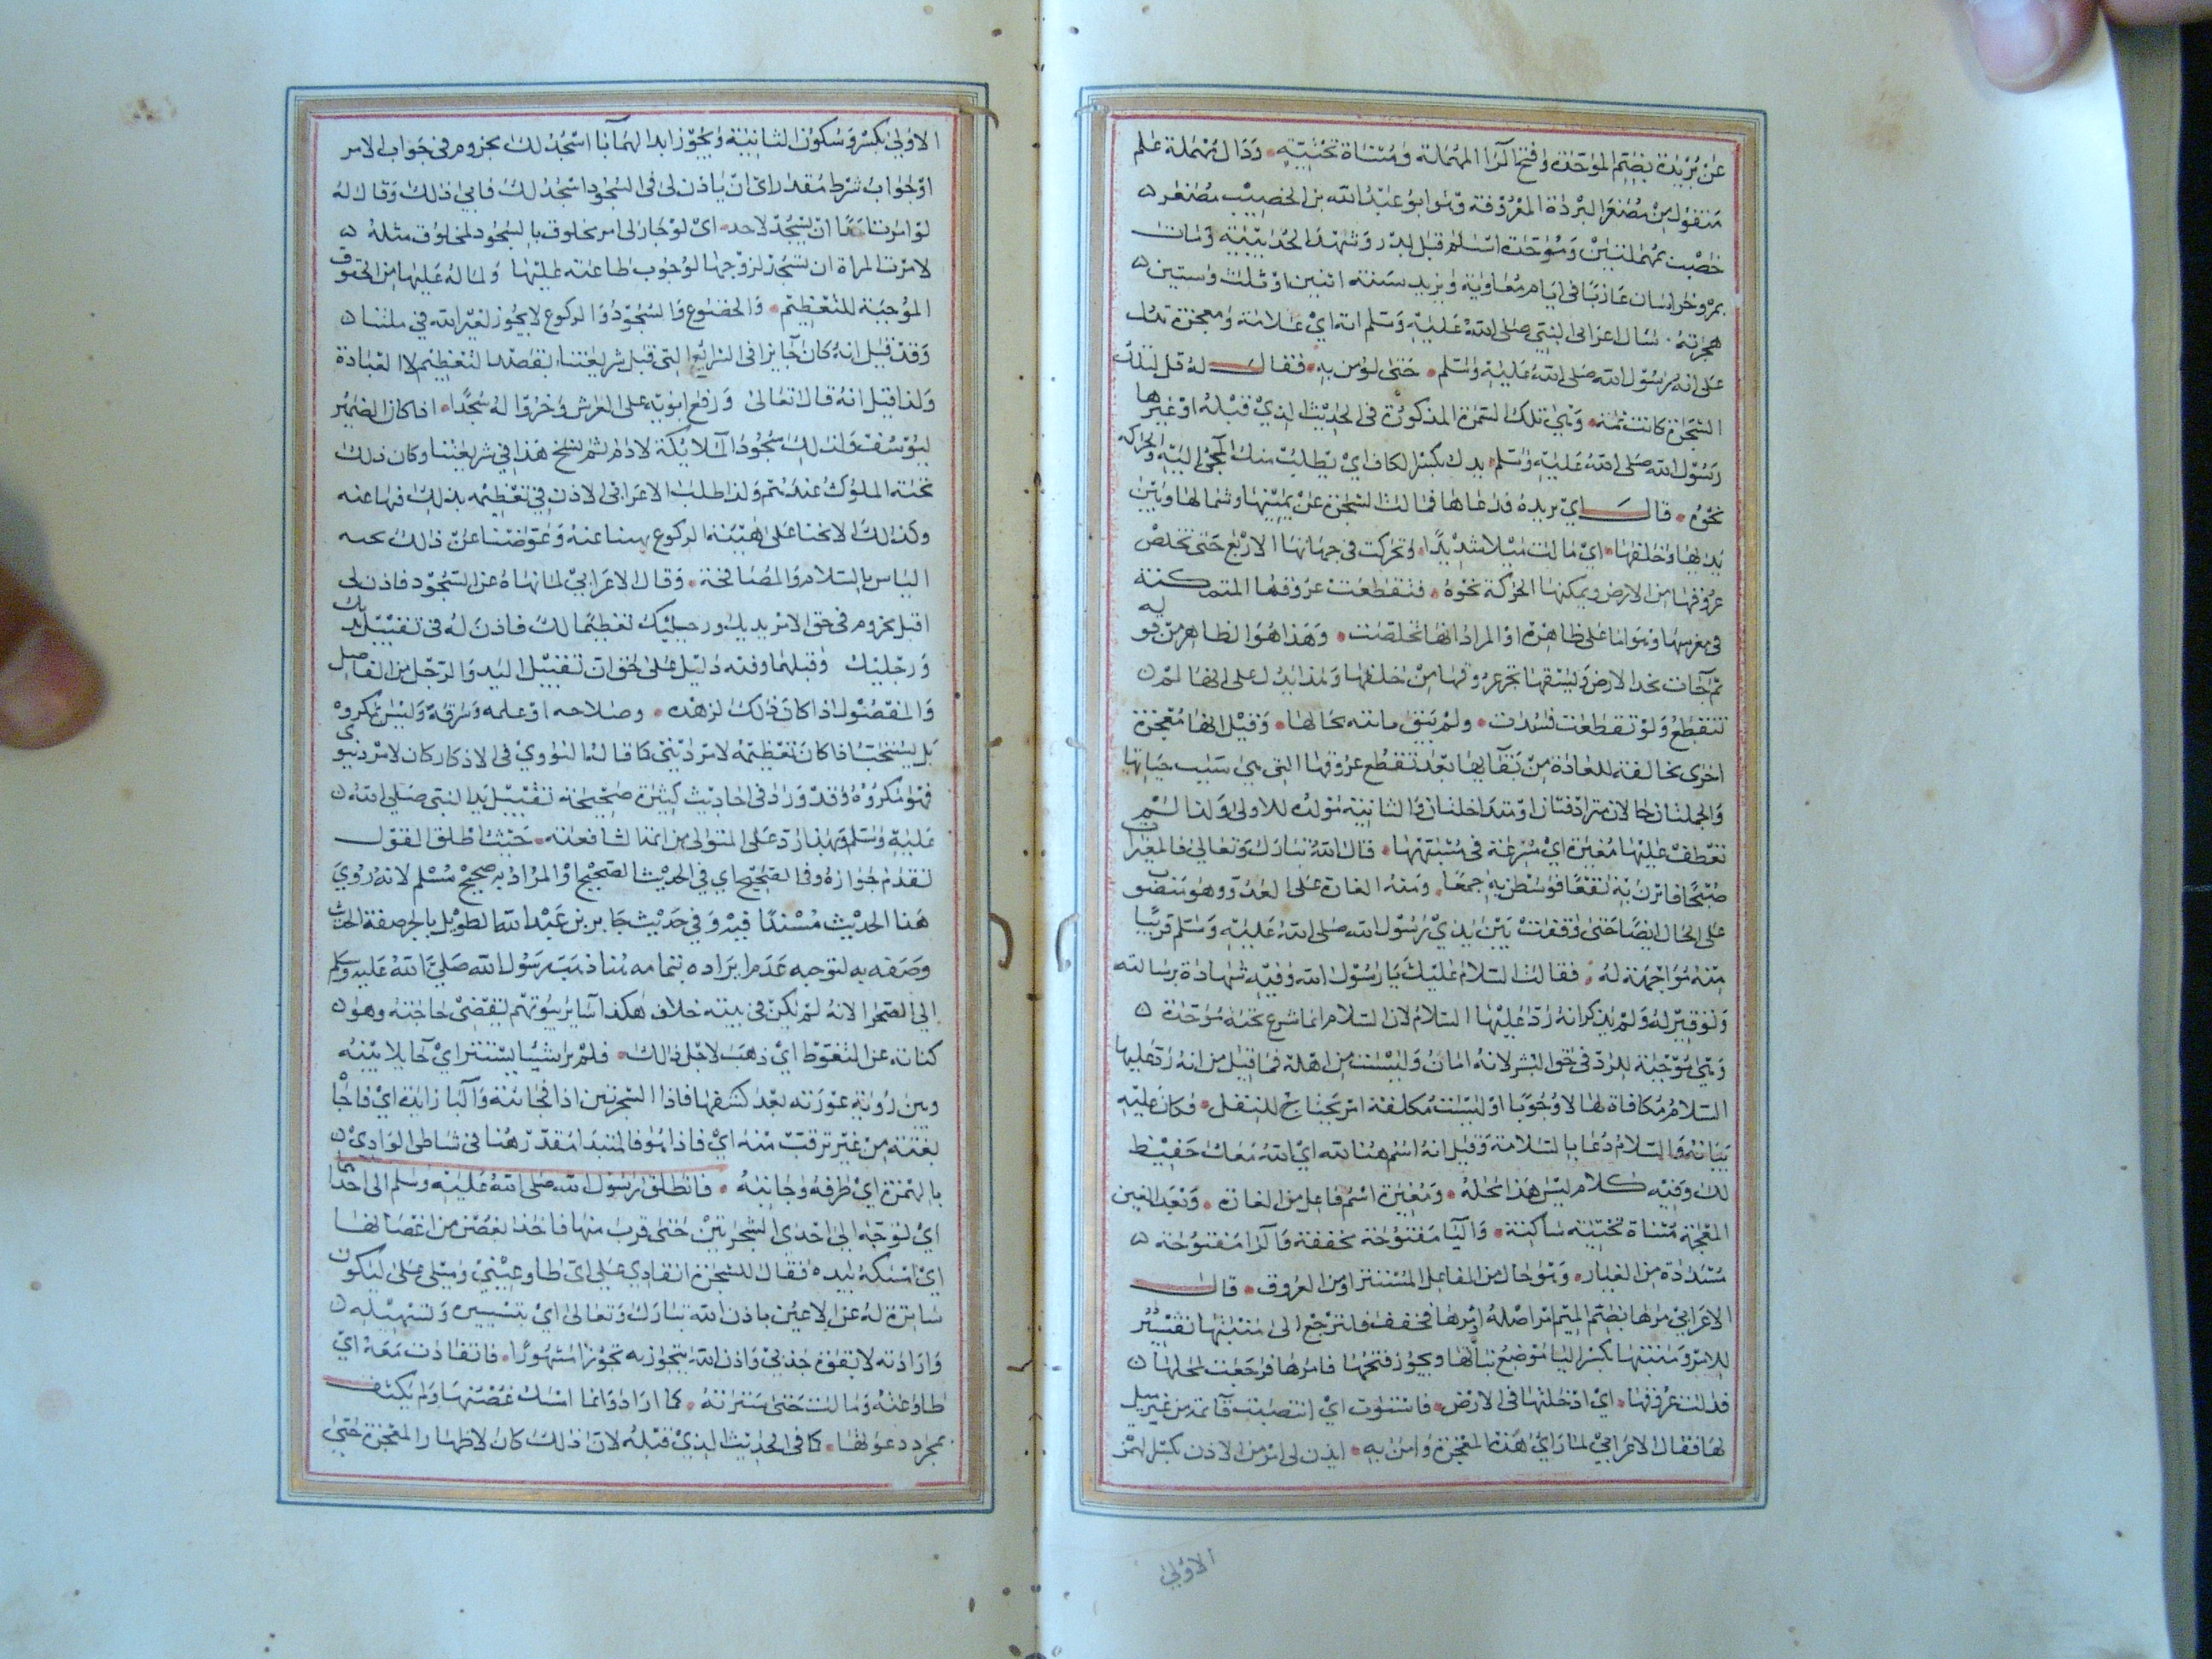 عن بريدة بضم الموحدة وفتح الرا المهملة ومثناة تحتيتة ودال مهملة علم
منقول من مصغر البردة المعروفة وهو ابو عبد الله بن الخصيب مصغر
خصب بمهملتين وموحدة اسلم قبل بدر وشهد الحديبية ومات
بمرو خراسان غازيا في ايام معاوية ويزيد سنة اثنين او ثلث وستين
هجرته سال اعرابي النبي صلى الله عليه وسلم اية اي علامة ومعجزة تدل
على انه رسول الله صلى الله عليه وسلم حتى نومن به فقال له قل لتلك
الشجرة كانت ثمة وهي تلك السمرة المذكورة في الحديث الذي قبله او غيرها
رسول الله صلى الله عليه وسلم يدك بكسر الكاف اي يطلب منك المجي اليه والحركه
نحوه قال اي بريده فدعاها فمالت الشجرة عن يمينها وشمالها وبين
يديها وخلفها اي مالت ميلا شديدا وتحركت في جهاتها الاربع حتى تخلص
عروقها من الارض ويمكنها الحركة نحوه فتقطعت عروقها المتمكنة
في مغرسها وهو اما على ظاهره او المراد انها تخلصت وهذا هو الظاهر من قوله
ثم جات تخد الارض ويشقها تجر عروقها من خلفها ولهذا يدل على انها لم
تنقطع ولو تقطعت فسدت ولم يبق مانته بحالها وقيل انها معجزة
اخرى مخالفة للعادة من بقايها بعد تقطع عروقها التي هي سبب حياتها
والجملتان حالان مترادفتان او متداخلتان والثانية مولده للاولى ولذا لم
تعطف عليها مغيرة اي مسرعة في مشيتها قال الله تبارك وتعالى فالمغيرات
صبحا فاثرن به نقعا فوسطن به جمعا ومنه الغارة على العدو وهو منصوب
على الحال ايضا حتى وقفت بين يدي رسول الله صلى الله عليه وسلم قريبا
منه مواجهة له فقالت السلام عليك يا رسول الله وفيه شهادة برسالته
وتوقير له ولم يذكر انه رد عليها السلام لان السلام انما شرع تحية موحدة
وهي موجبة للرد في حق البشر لانه امان وليست من اهله فما قيل من انه رد عليها
السلام مكافاة لها لا وجوبا اذ ليست مكلفة امر يحتاج للنقل وكان عليه
بيانه والسلام دعا بالسلامة وقيل انه اسم هنا لله اي الله معك حفيظ
لك وفيه كلام ليس هذا محله ومغيرة اسم فاعل من الغارة وبعد الغين
المعجمة مثناة تحتية ساكنة واليا مفتوحة مخففة والرا مفتوحة
مشددة من الغبار وهو حال من الفاعل المستتر او من العروق قال
الاعرابي مرها بضم الميم امر اصله اومرها فخفف فلترجع الى منبتها تفسير
للامر ومنبتها بكسر البا موضع نباتها ويجوز فتحها فامرها فرجعت لمحلها
فدلت عروقها اي ادخلتها في الارض فاستوت اي انتصبت قائمة من غير ميل
لها فقال الاعرابي لما راي هذه المعجزة وامن به ايذن لي امر من الاذن بكسر الهمز
الاولى
الاولى بكسر وسكون الثانية ويجوز ابدالهما يا اسجد لك مجزوم في جواب الامر
او جواب شرط مقدر اي ان ياذن لي في السجود اسجد لك فابي ذلك وقال له
لو امرت احدا ان يسجد لاحد اي لو جاز لي امر مخلوق بالسجود لمخلوق مثله
لامرت المراة ان تسجد لزوجها لوجوب اطاعته عليها ولما له عليها من الحقوق
الموجبة للتعظيم والخضوع والسجود والركوع لا يجوز لغير الله في ملتنا
وقد قيل انه كان جايزا في الشرايع التي قبل شريعتنا بقصد التعظيم لا العبادة
ولذا قيل انه قال تعالى ورفع ابويه على العرش وخروا له سجدا اذا كان الضمير
ليوسف وكذلك سجود الملائكة لادم ثم نسخ هذا في شريعتنا وكان ذلك
تحية الملوك عندهم ولذا طلب الاعرابي الاذن في تعظيمه بذلك فنهاه عنه
وكذلك الانحنا على هيئة الركوع نهينا عنه وعوضنا عن ذلك تحيه
الناس بالسلام والمصافحة وقال الاعرابي لما نهاه عن السجود فاذن لي
اقبل مجزوم في حق الامر يديك ورجليك تعظيما لك فاذن له في تقبيل يديك
ورجليك وقبلهما وفيه دليل على جواز تقبيل اليد والرجل من الفاضل
والمفضول اذا كان ذلك لزهده وصلاحه او علمه وشرفه وليس بمكروه
بل يستحب اذا كان تعظيمه لامر ديني كما قال النووي في الاذكار كان لامر دنيوي
فهو مكروه وقد ورد في احاديث كثيرة صحيحة تقبيل يد النبي صلى الله
عليه وسلم وبهذا رد على المتولى من ائمة الشافعية حيث اطلق القول
بعدم جوازه وفي الصحيح اي في الحديث الصحيح او المراد به صحيح مسلم لانه روي
هذا الحديث مسندا فيه وفي حديث جابر بن عبد الله الطويل بالجر صفة الحديث
وصفه به لتوجيه عدم ايراده بتمامه هنا ذهب رسول الله صلى الله عليه وسلم
الي الصحرا لانه لم يكن في بيته خلاف هكذا سائر بيوتهم ليقضي حاجته وهو
كناية عن التغوط اي ذهب لاجل ذلك فلم ير شيئا يستتر اي حايلا بينه
وبين روية عورته بعد كشفها فاذا الشجرتين اذا فجائية والبا زايدة اي فاجا
بغتة من غير ترقب منه اي فاذا هو فالمبتدا مقدر هنا في شاطي الوادي
بالهمزة اي طرفه وجانبه فانطلق رسول الله صلى الله عليه وسلم الى احداهما
اي توجه الي احدي الشجرتين حتى قرب منها فاخذ بغصن من اغصانها
اي امسكه بيده فقال للشجرة انقادي علي اي طاوعيني وميلي على ليكون
ساترة له عن الاعين باذن الله تبارك وتعالى اي بتيسيره وتسهيله
وارادته لا بقوة جذبي واذن الله يتجوز به تجوزا مشهورا فانقادت معه اي
طاوعته ومالت حتى سترته كما اراد وانما امسك غصنها ولم يكتف
بمجرد دعوتها كما في الحديث الذي قبله لان ذلك كان لاظهار المعجزة حتى